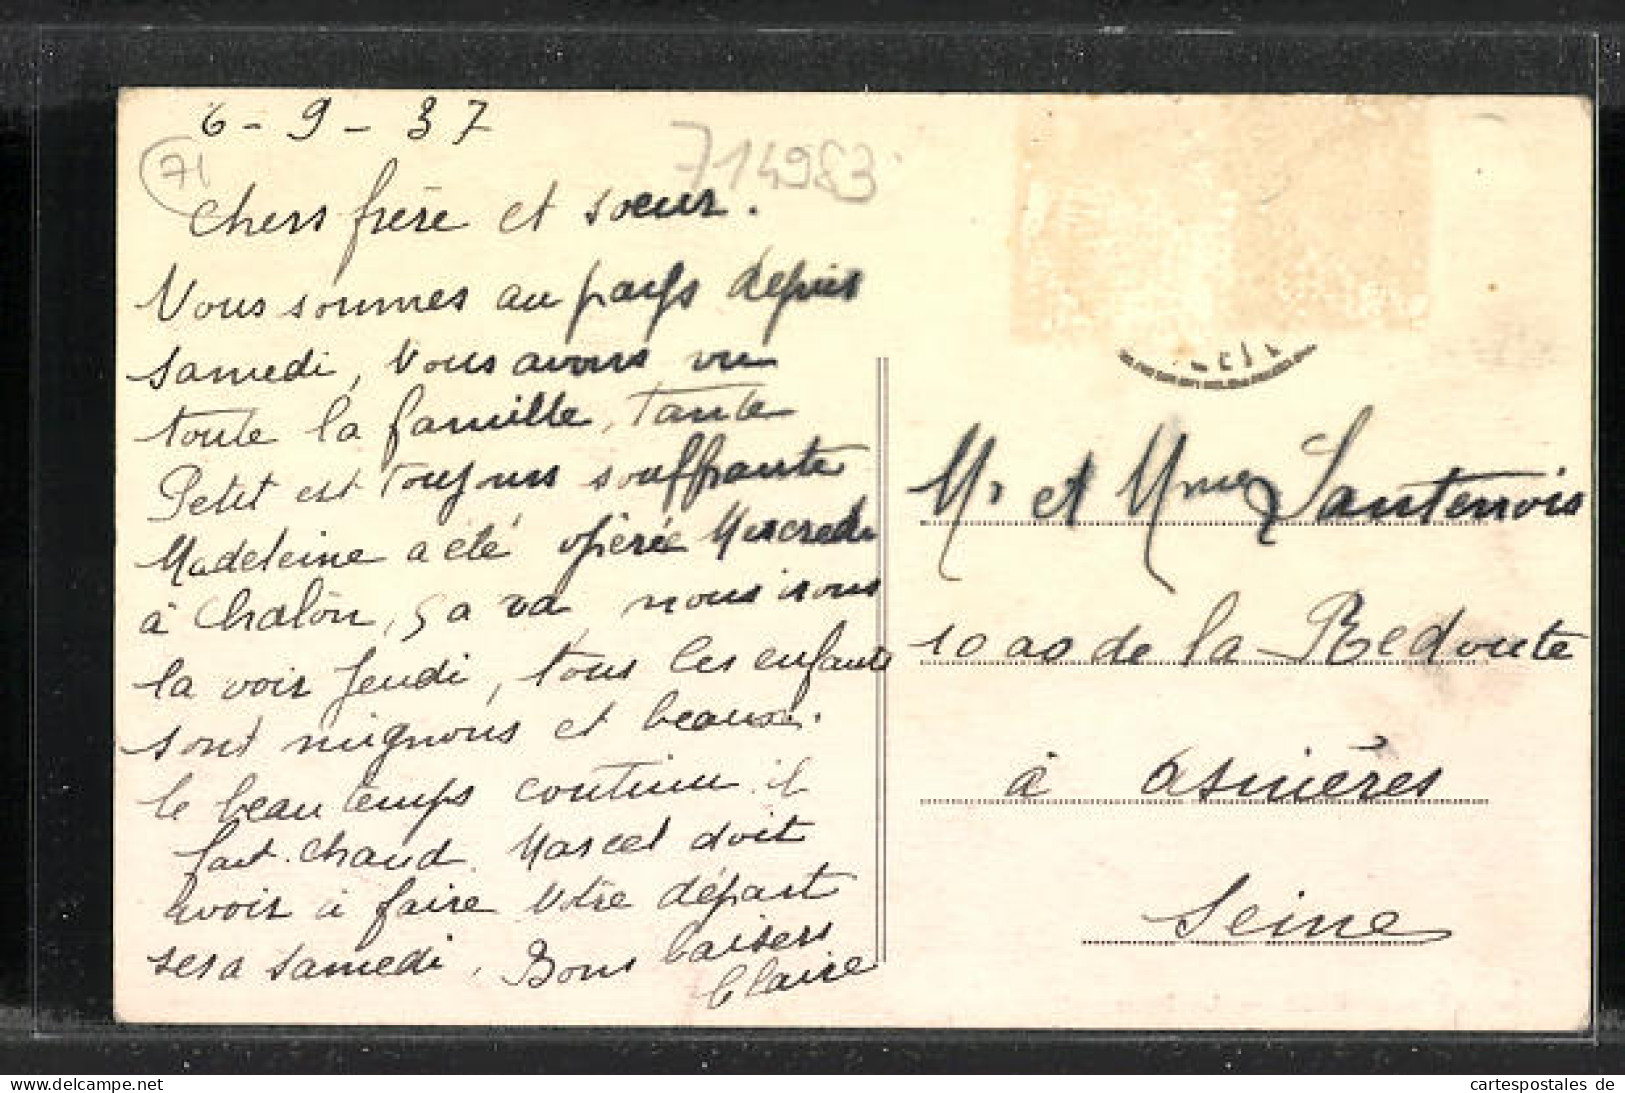 6-9-37
71
714983
Chers frère et soeur.
Nous sommes au pays depuis
samedi, Nous avons vu
toute la famille, Tante
Petit est toujours souffrante
Madeleine a été opérée Mercredi
à Chalon, ça va nous irons
la voir Jeudi, tous les enfants
sont mignons et beaux.
le beau temps continu il
fait chaud Marcel doit
avoir à faire Notre départ
sera samedi. Bons baisers
Claire
Mr et Mme Santerrois
10 de la Redoute
à Asnières
Seine
© Delcampe.net
cartespostales de